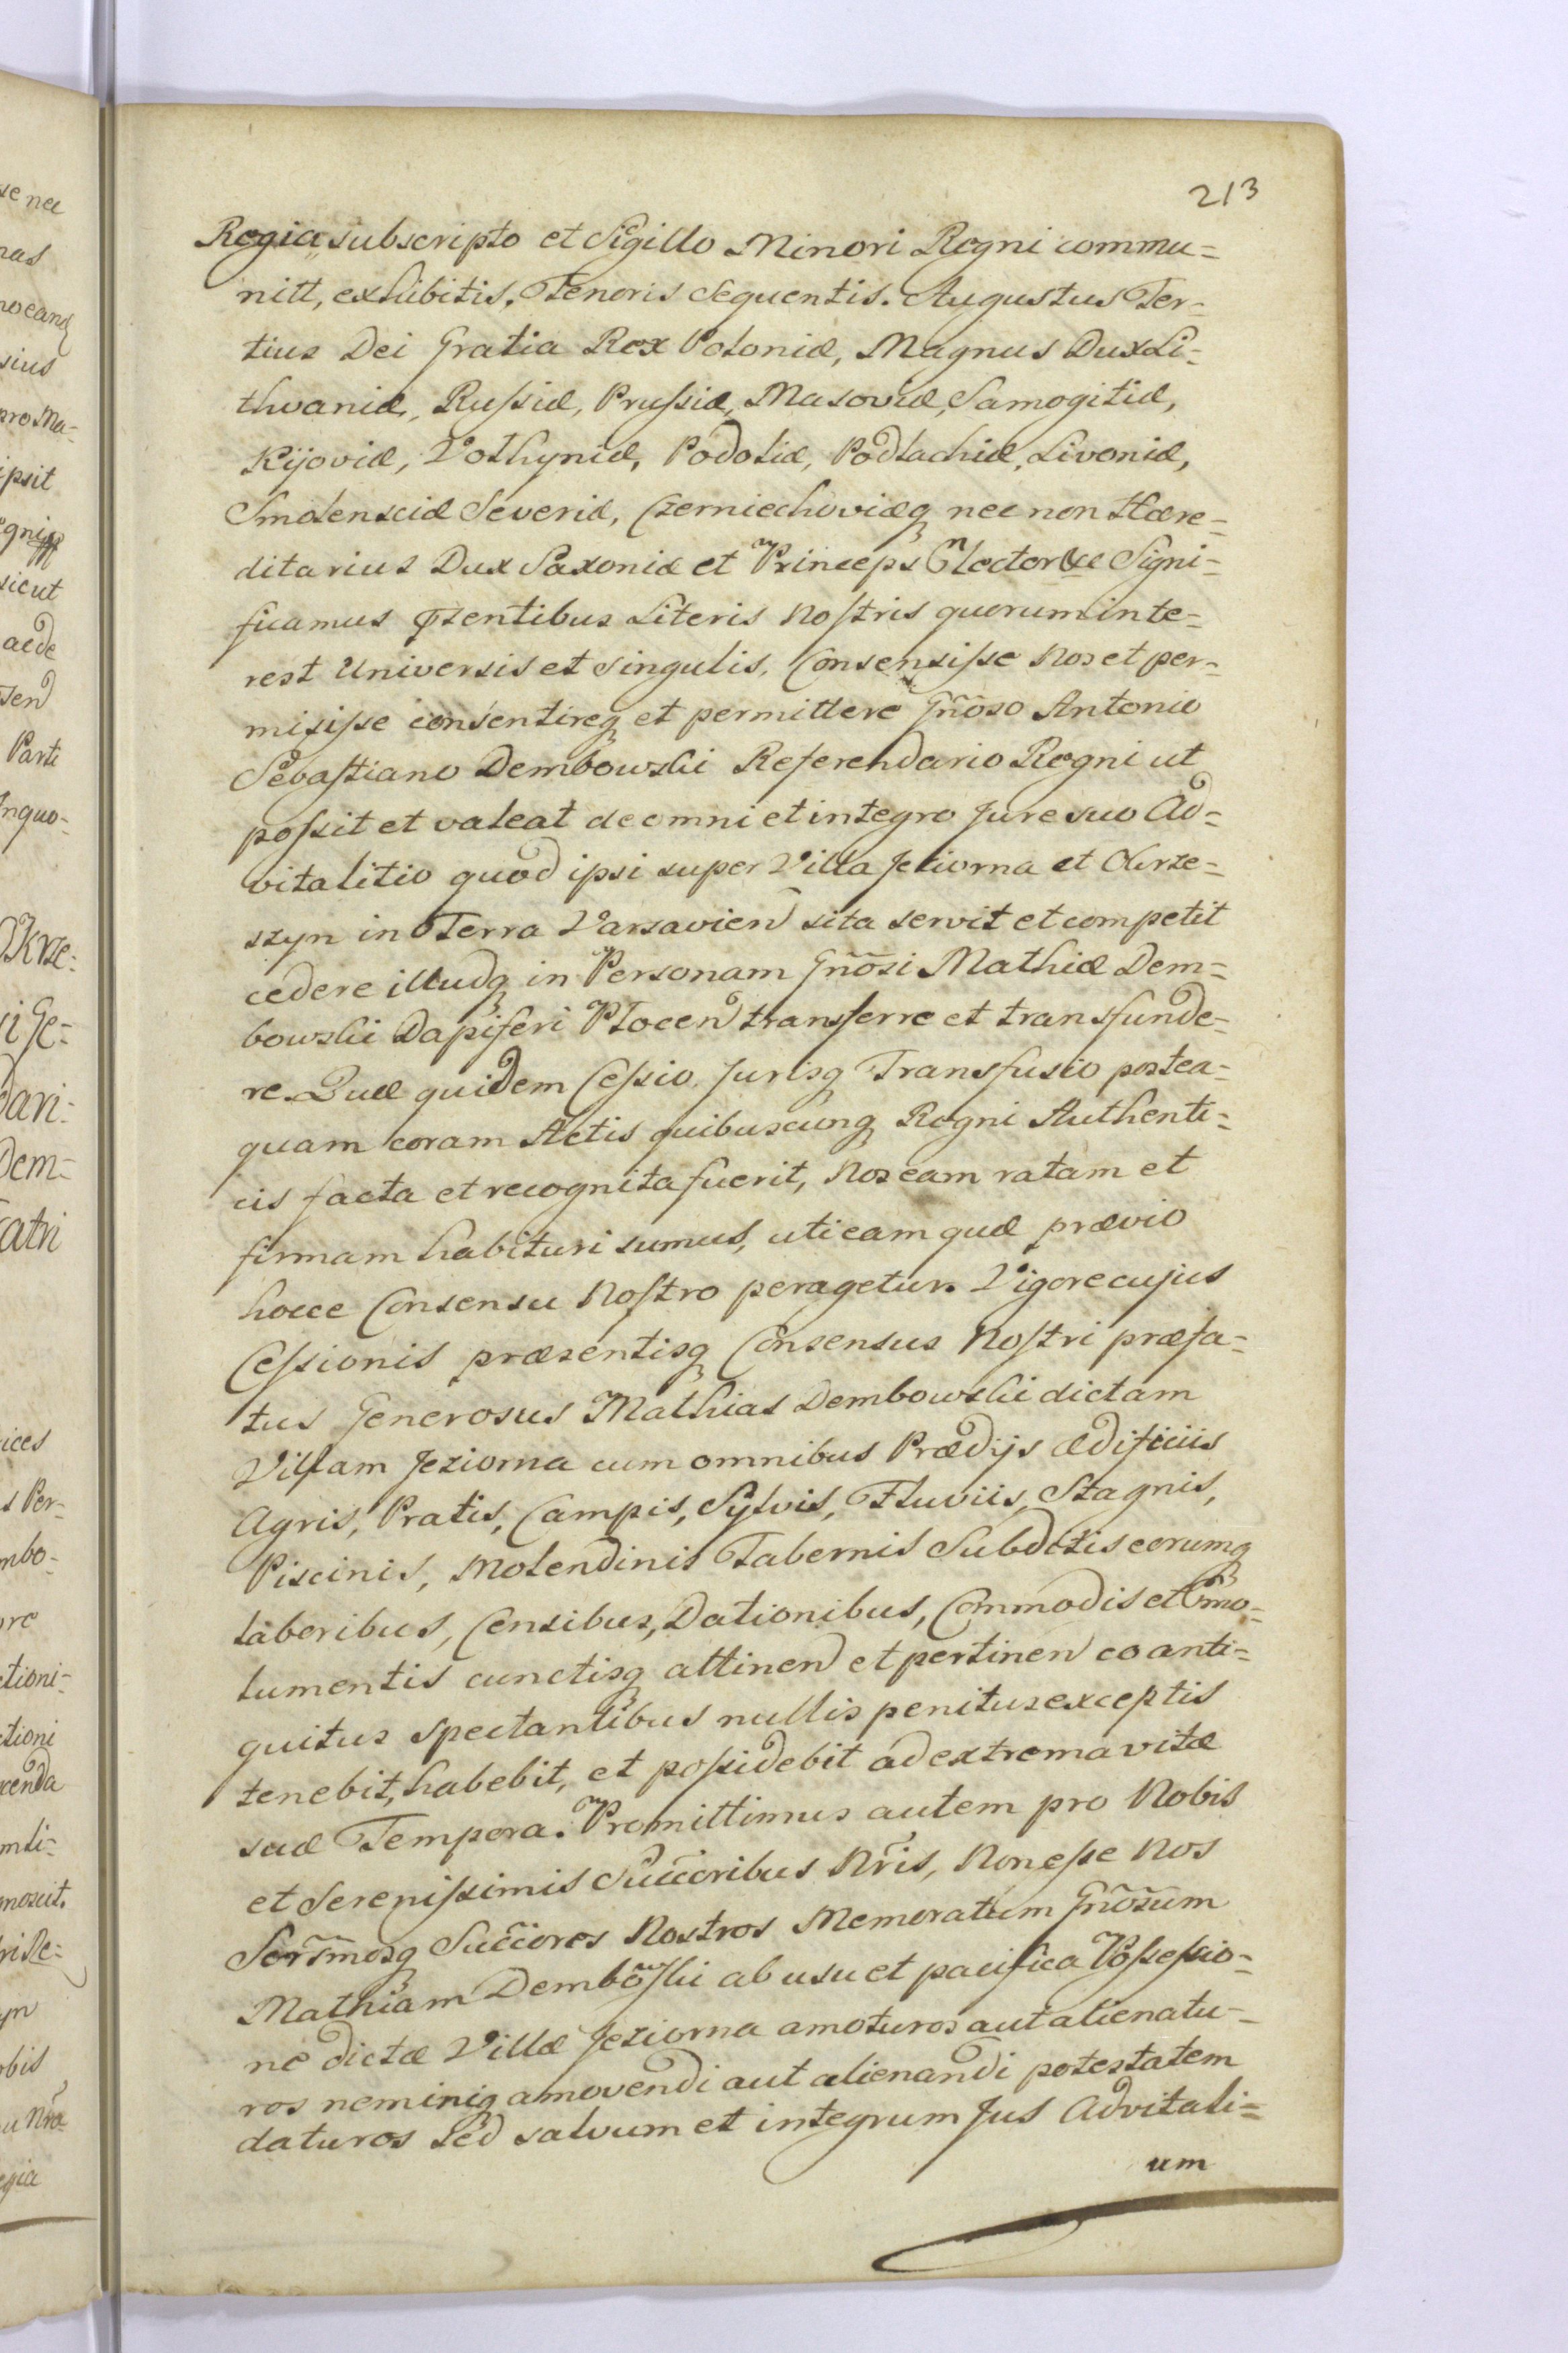 213
Regia subscripto et Sigillo Minori Regni commu=
nitt, exhibitis, Tenoris Sequentis. Augustus Ter-
tius Dei Gratia Rex Poloniæ, Magnus Dux Li=
thvaniæ, Russiæ, Prussiæ, Masoviæ, Samogitiæ,
Kijoviæ, Volhyniæ, Podoliæ, Podlachiæ, Livoniæ,
Smolensciæ Severiæ, Czerniechoviæq nec non Hære=
ditarius Dux Saxoniæ et Princeps Elector &c Signi=
ficamus pr̃sentibus Literis Nostris quorum inte=
rest Universis et Singulis, Consensisse Nos et per=
misisse consentireq et permittere Gñoso Antonio
Sebastiano Dembowski Referendario Regni ut
possit et valeat de omni et integro Jure suo Ad=
vitalitio quod ipsi super Villa Jeziorna et Okrze=
szyn in Terra Varsavien sita servit et competit
cedere illudq in Personam Gñosi Mathiæ Dem=
bowski Dapiferi Plocen transferre et transfunde=
re. Quæ quidem Cessio Jurisq Transfusio postea=
quam coram Actis quibuscunq Regni Authenti=
cis facta et recognita fuerit, Nos eam ratam et
firmam habituri sumus, uti eam quæ prævio
hocce Consensu Nostro peragetur. Vigore cujus
Cessionis præsentisq Consensus Nostri præfa=
tus Generosus Mathias Dembowski dictam
Villam Jeziorna cum omnibus Prædijs ædificiis
Agris, Pratis, Campis, Sylvis, Fluviis, Stagnis,
Piscinis, Molendinis Tabernis Subditis eorumq
laboribus, Censibus, Dationibus, Commodis et Emo=
lumentis cunctisq attinen et pertinen eo anti=
quitus spectantibus nullis penitus exceptis
tenebit, habebit, et possidebit ad extrema vitæ
suæ Tempora. Promittimus autem pro Nobis
et Serenissimis Succ̃oribus Nr̃is, Non esse Nos
Ser̃mosq Succ̃ores Nostros Memoratum Gñosum
Mathiam Dembowski ab usu et pacifica Possessio=
ne dictæ Villæ Jeziorna amoturos aut alienatu=
ros neminiq amovendi aut alienandi potestatem
daturos Sed salvum et integrum Jus Advitali=
um